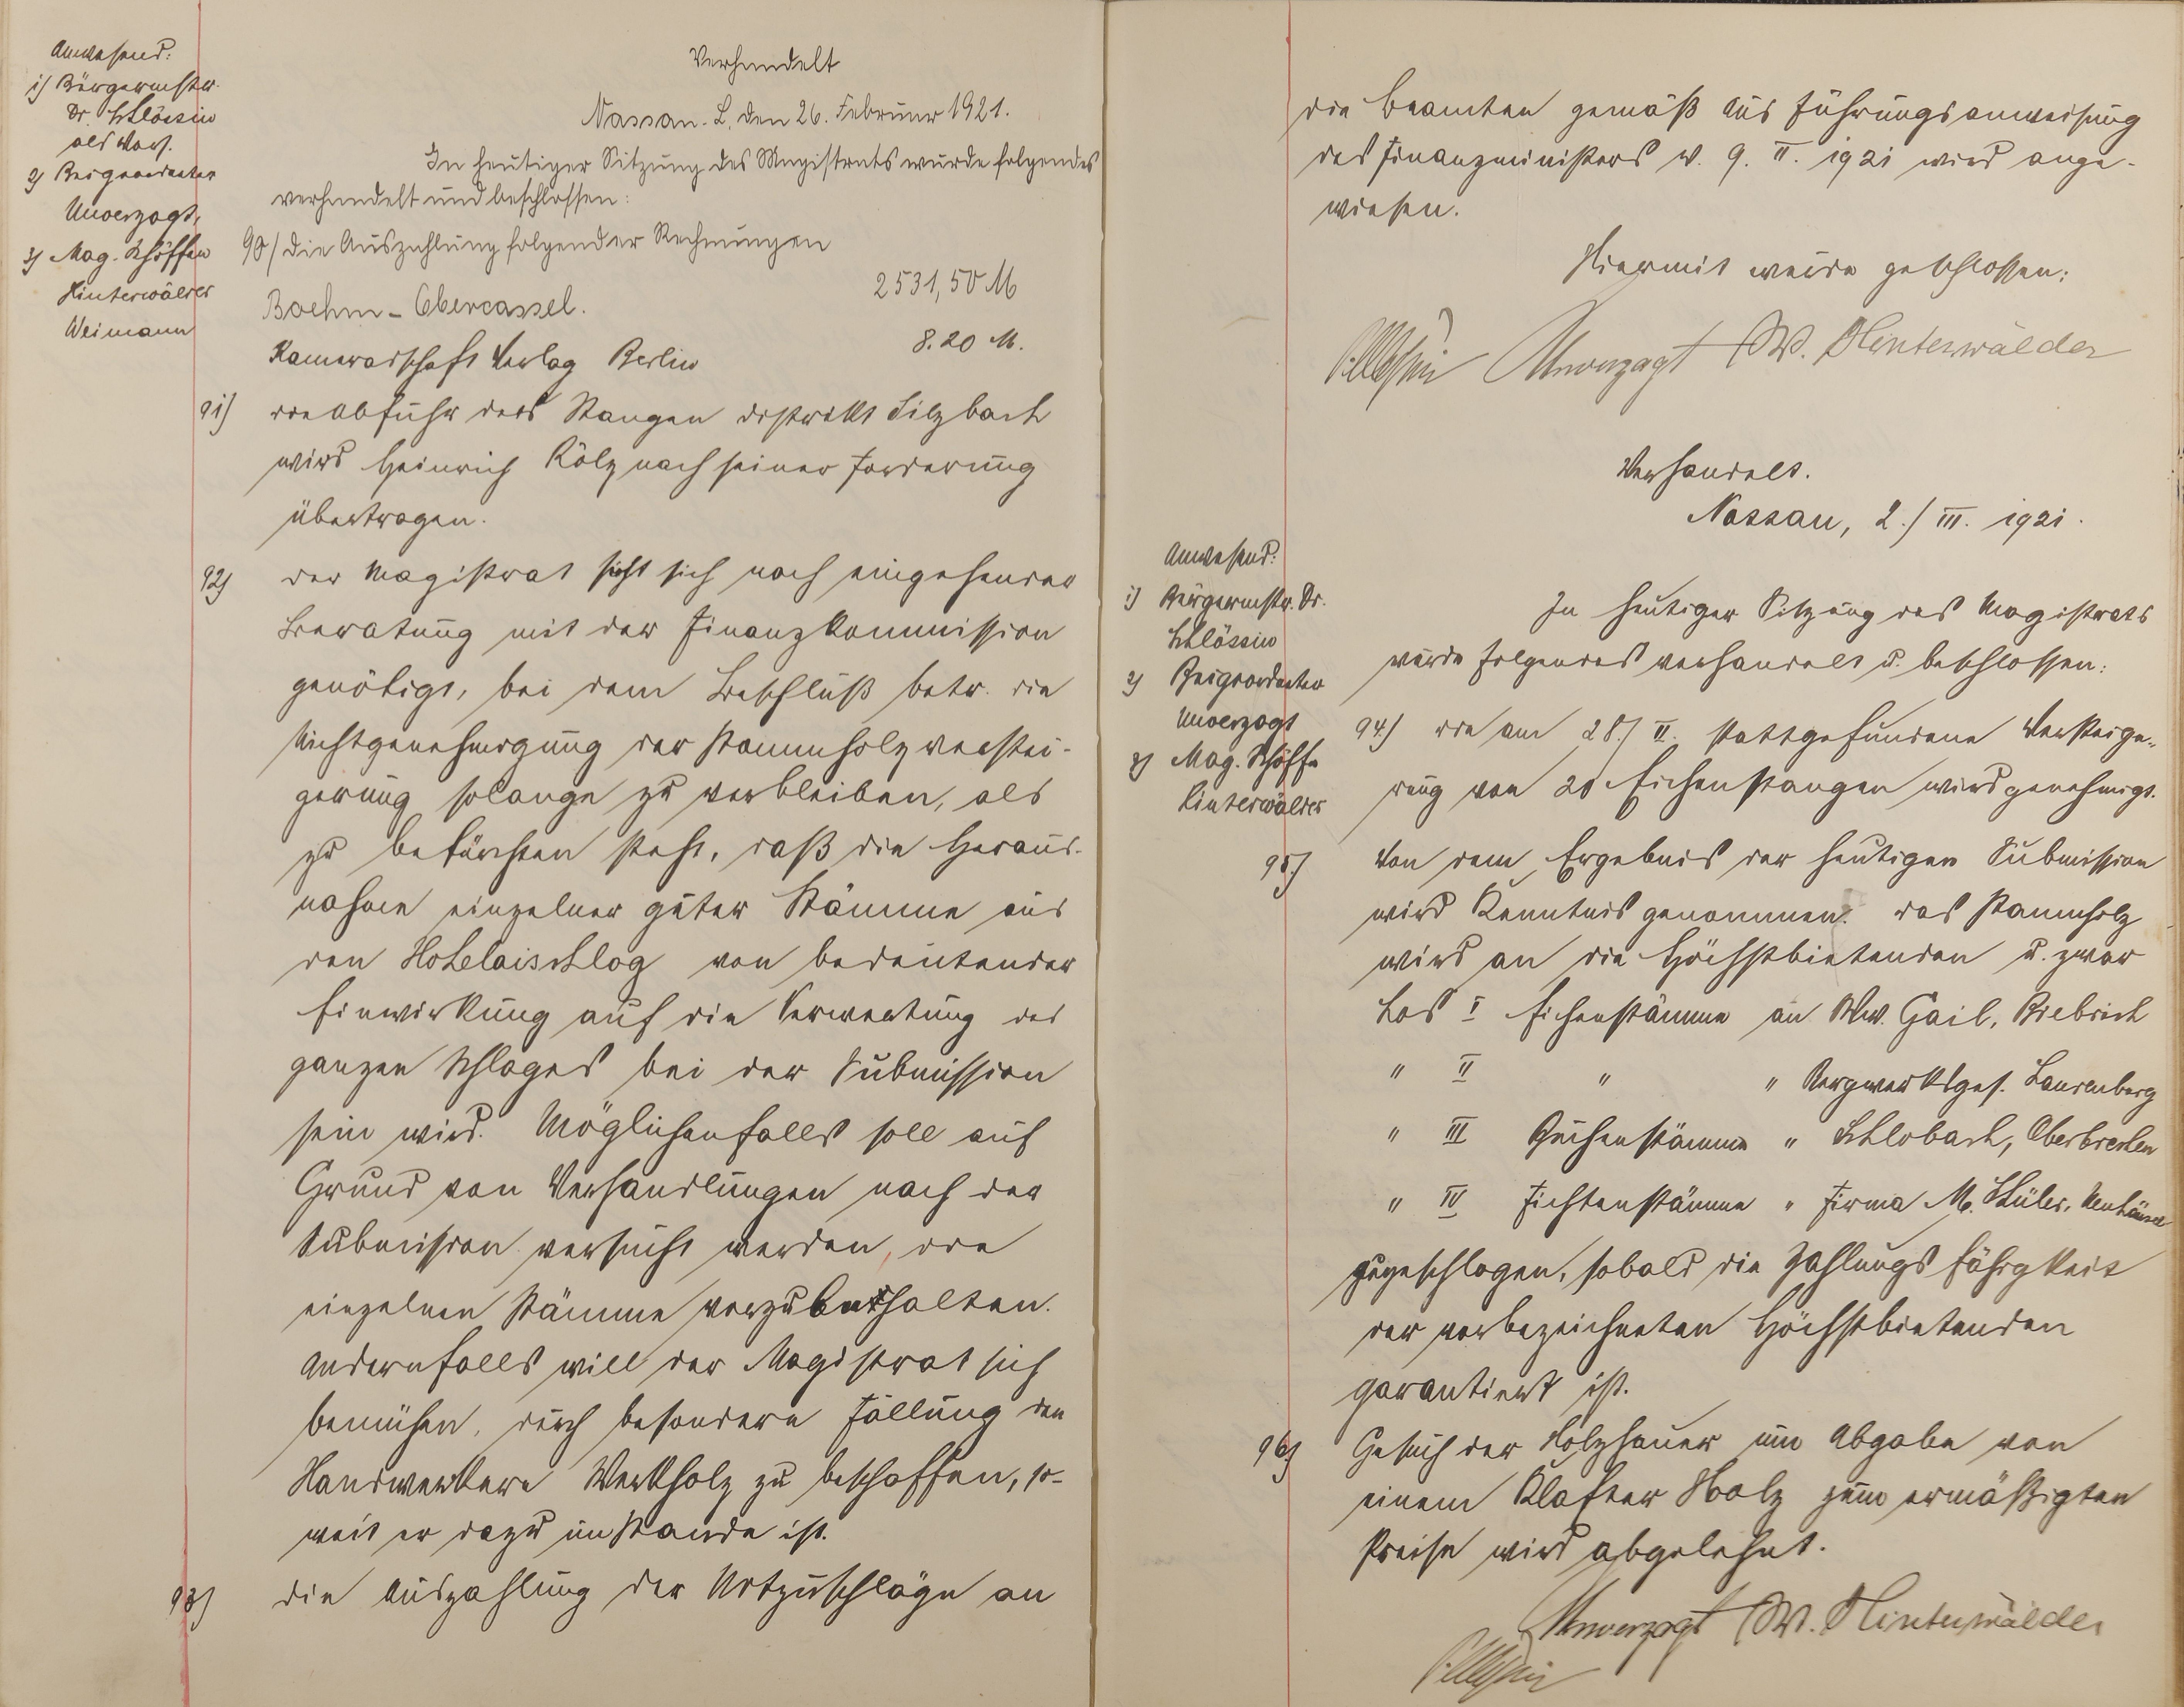 Anwesend:
1) Bürgermstr.
Dr. Schlössin
als Vors.
2) Beigeordneter
Unverzagt,
3) Mag. Schöffen
Hinterwälder
Weimann
Verhandelt
Nassau-L, den 26. Februar 1921.
In heutiger Sitzung des Magistrats wurde folgendes
verhandelt und beschlossen:
90/ Die Auszahlung folgender Rechnungen
Boehm - Obercassel. 2531,50 M
Kameradschaft Verlag Berlin 8.20 M.
91) die Abfuhr der Stangen Distrikt Silzbach
wird Heinrich Kölz nach seiner Forderung
übertragen.
92) der Magistrat sieht sich nach eingehender
Beratung mit der Finanzkommission
genötigt, bei dem Beschluß betr. die
Nichtgenehmigung der Stammholzverstei-
gerung solange zu verbleiben, als
zu befürchten steht, daß die Heraus-
nahme einzelner guter Stämme aus
den Hohelaischlag von bedeutender
Einwirkung auf die Verwertung des
ganzen Schlages bei der Submission
sein wird. Möglichenfalls soll auf
Grund von Verhandlungen nach der
Submission versucht werden, die
einzelnen Stämme vorzubehalten.
Andernfalls will der Magistrat sich
bemühen, durch besondere Fällung den
Handwerkern Werkholz zu beschaffen, so-
weit er dazu imstande ist.
93) die Auszahlung der Ortzuschläge an
die Beamten gemäß Ausführungsanweisung
des Finanzministers v. 9. II. 1921 wird ange-
wiesen.
Hiermit wurde geschlossen:
Schlössin Unverzagt W. Hinterwälder
Verhandelt.
Nassau, 2./III. 1921.
Anwesend:
1) Bürgermstr. Dr.
Schlössin
2) Beigeordneter
Unverzagt
3) Mag. Schöffe
Hinterwälder
In heutiger Sitzung des Magistrats
wurde folgendes verhandelt u. beschlossen:
94) die am 28./II. stattgefundene Versteige-
rung von 20 Eichenstangen wird genehmigt.
95.) Von dem Ergebnis der heutigen Submission
wird Kenntnis genommen. das Stammholz
wird an die Höchstbietenden u. zwar
Los I Eichenstämme an Ww. Gail, Biebrich
" II " " Bergwerksges. Laurenberg
" III Buchenstämme " Schlobach, Oberbrechen
" IV Fichtenstämme " Firma M. Stüler, Neuhäusel
zugeschlagen, sobald die Zahlungsfähigkeit
der vorbezeichneten Höchstbietenden
garantiert ist.
96) Gesuch der Holzhauer um Abgabe von
einem Klafter Holz zum ermäßigten
Preise wird abgelehnt.
Unverzagt W. Hinterwälder
Schlössin